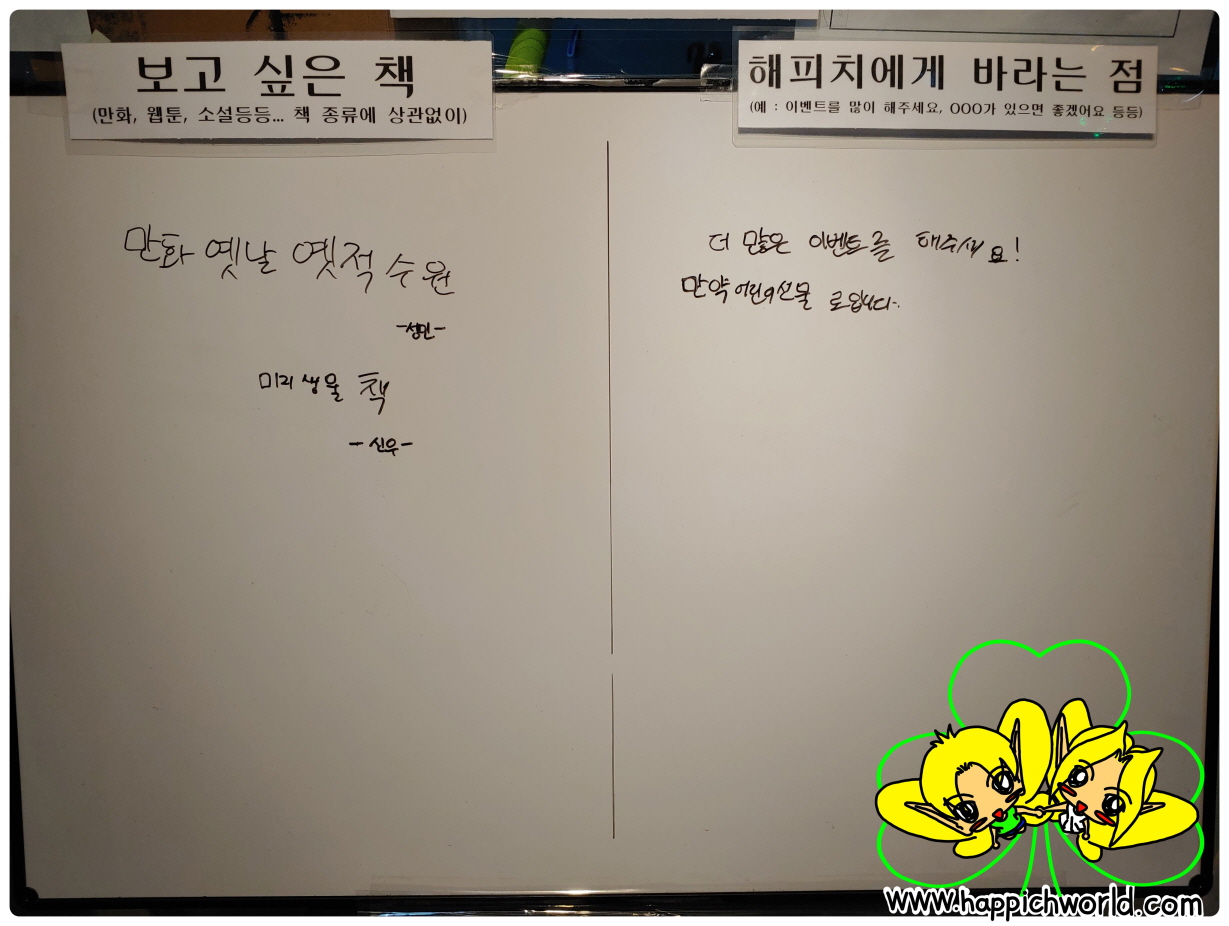 보고 싶은 책
(만화, 웹툰, 소설등등... 책 종류에 상관없이)
만화 옛날 옛적 수원
-성민-
미리 생물 책
-신우-
해피치에게 바라는 점
(예 : 이벤트를 많이 해주세요, OOO가 있으면 좋겠어요 등등)
더 많은 이벤트를 해주세요!
만약 어린이선물 로입니다..
www.happichworld.com